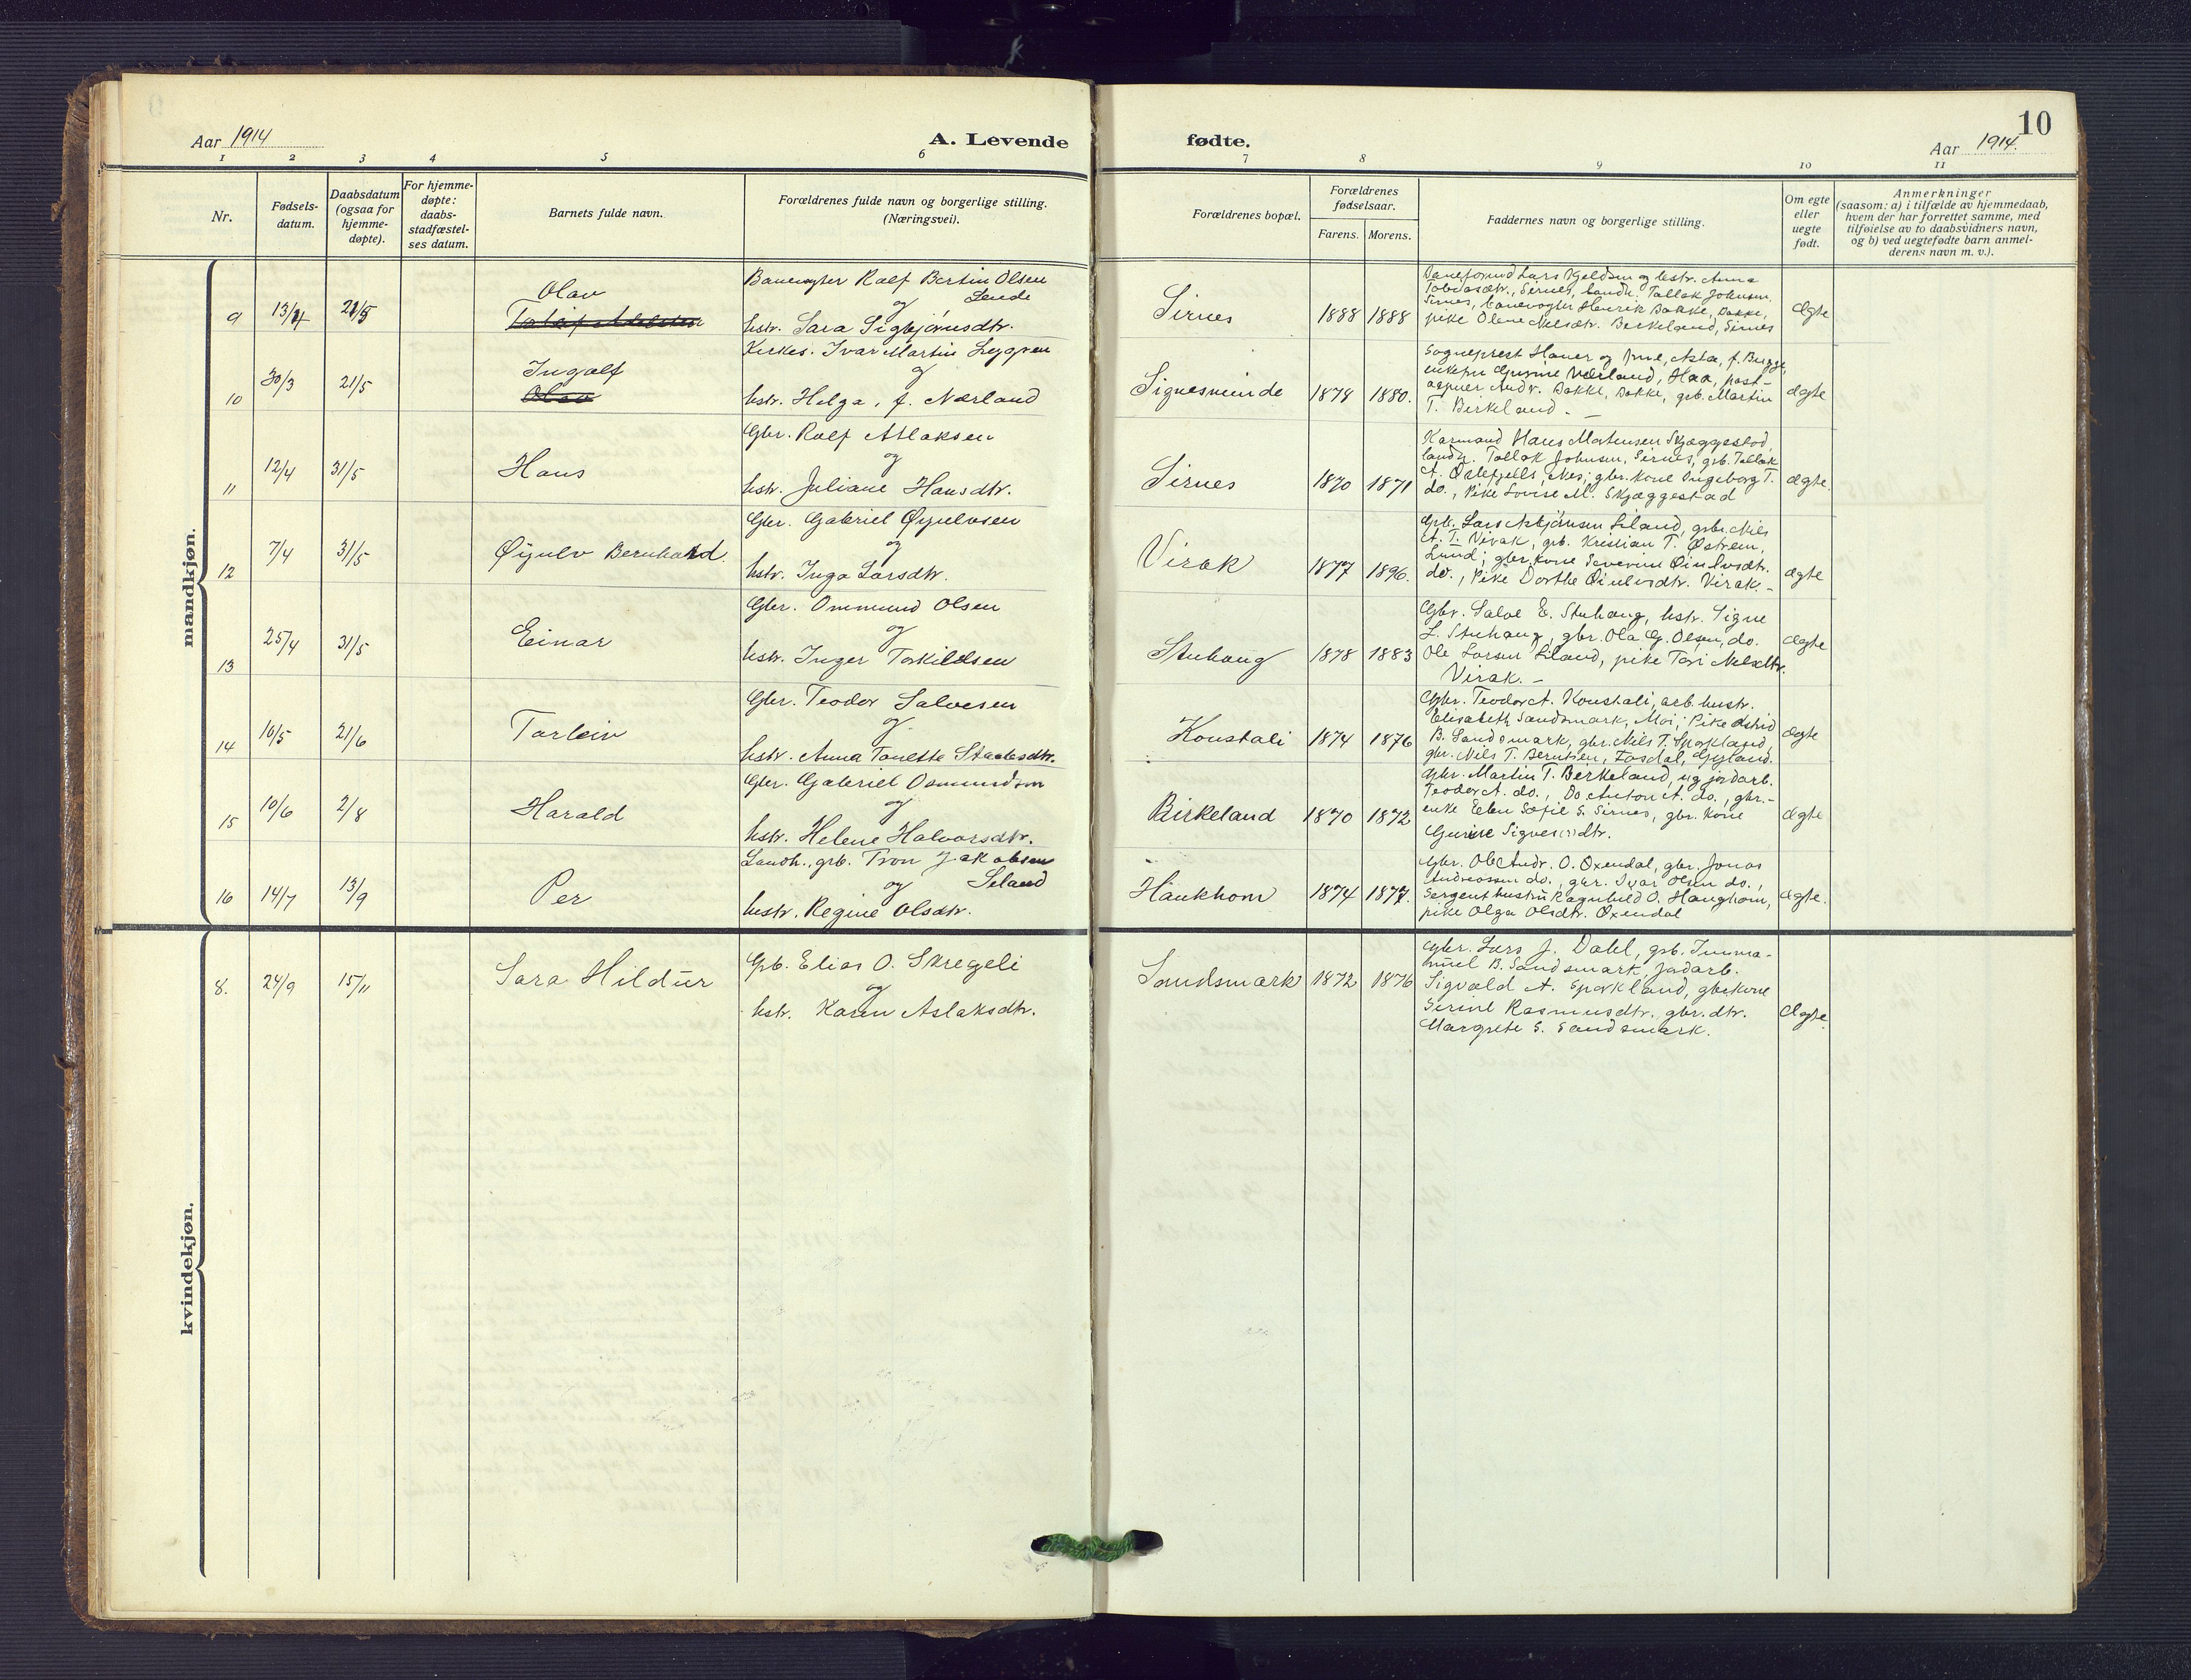 10
Aar 1914
A. Levende
fødte.
Aar 1914.
1 2 3 4 5 6 7 8 9 10 11
Nr.
Fødsels-
datum.
Daabsdatum
(ogsaa for
hjemme-
døpte).
For hjemme-
døpte:
daabs-
stadfæstel-
ses datum.
Barnets fulde navn.
Forældrenes fulde navn og borgerlige stilling.
(Næringsvei).
Forældrenes bopæl.
Forældrenes
fødselsaar.
Farens. Morens.
Faddernes navn og borgerlige stilling.
Om egte
eller
uegte
født.
Anmerkninger
(saasom: a) i tilfælde av hjemmedaab,
hvem der har forrettet samme, med
tilføielse av to daabsvidners navn,
og b) ved uegtefødte barn anmel-
derens navn m. v.).
mandkjøn.
9 13/4 21/5
Olav
Banevogter Ralf Bertin Olsen
og Lende
hstr. Sara Sigbjørnsdtr.
Sirnes 1888 1888
Baneformand Lars Kjeldsen og hstr. Anna
Tobiasdtr., Sirnes, landh. Tallak Johnsen,
Sirnes, banevogter Henrik Bakke, Bakke,
pike Olene Nelsdtr. Berkeland, Sirnes
ægte
10 30/3 21/5
Ingolf
Olav
Kirkes. Ivar Martin Seyyven
og
hstr. Helga, f. Nærland
Signesminde 1879 1880.
Sogneprest Hauer og frue, Asta, f. Bugge,
enkefru Gurine Nærland, Haa, post-
aapner Andr. Bakke, Bakke, grb. Martin
T. Birkland. -
ægte
11 12/4 31/5
Hans
Gbr. Ralf Atlaksen
og
hstr. Juliane Hansdtr.
Sirnes 1870 1871
Kaarmand Hans Mortensen Skjæggestad,
landh. Tallak Johnsen, Sirnes, grb. Tallak
A. Østefjells, Nes; gbr. kone Ingeborg T.
do., Pike Lovise M. Skjæggestad
ægte.
12 7/4 31/5
Øyulv Bernhard.
Gbr. Gabriel Øyulvsen
og
hstr. Inga Larsdtr.
Virak 1877 1896.
Gbr. Lars Asbjørnsen Liland, grb. Nils
A. T. Virak, grb. Kristian T. Østrem,
Lund; gbr. kone Severine Øiulvsdtr.
do., Pike Dorthe Øiulvsdtr. Virak. -
ægte
13 25/4 31/5
Einar
Gbr. Ommund Olsen
og
hstr. Inger Torkildsen
Stuhaug 1878 1883
Gbr. Salve E. Stuhaug, hstr. Signe
L. Stuhaug, gbr. Ola G. Olsen, do.
Ole Larsen Liland, pike Tori Nelsdtr.
Virak. -
ægte
14 16/5 21/6
Torleiv
Gbr. Teodor Salvesen
og
hstr. Anna Tonette Staalesdtr.
Konstali 1874 1876
Gbr. Teodor A. Konstali, arb. hustr.
Elisabeth Sandsmark, Moi; Pike Astrid
B. Sandsmark, gbr. Nils T. Sporkland,
gbr. Nils T. Berntsen, Josdal, Gyland.
ægte
15 10/6 2/8
Harald
Gbr. Gabriel Osmundsen
og
hstr. Helene Halvorsdtr.
Birkeland 1870 1872
Gbr. Martin T. Birkeland, ug. jordarb.
Teodor A. do., Do Anton A. do., gbr.-
enke Elen Sofie S. Sirnes, gbr. kone
Gurine Signes(?)dtr.
ægte
16 14/7 13/9
Per
Landh., grb. Tron Jakobsen
og Seland
hustr. Regine Olsdtr.
Haukhom 1874 1877.
Gbr. Ole Andr. O. Oxendal, gbr. Jonas
Andreassen do., gbr. Ivar Olsen do.,
Sergent hustru Ragnhild O. Haughom,
pike Olga Olsdtr. Oxendal
ægte.
kvindekjøn.
8. 24/9 15/11
Sara Hildur
Grb. Elias O. Skregeli
og
hstr. Karen Aslaksdtr.
Sandsmark 1872 1876
Gbr. Lars J. Dahl, grb. Imma-
nuel B. Sandsmark, jordarb.
Sigvald A. Sporkland, gbrkone
Serine Rasmusdtr., gbr. dtr.
Margrete S. Sandsmark.
ægte.